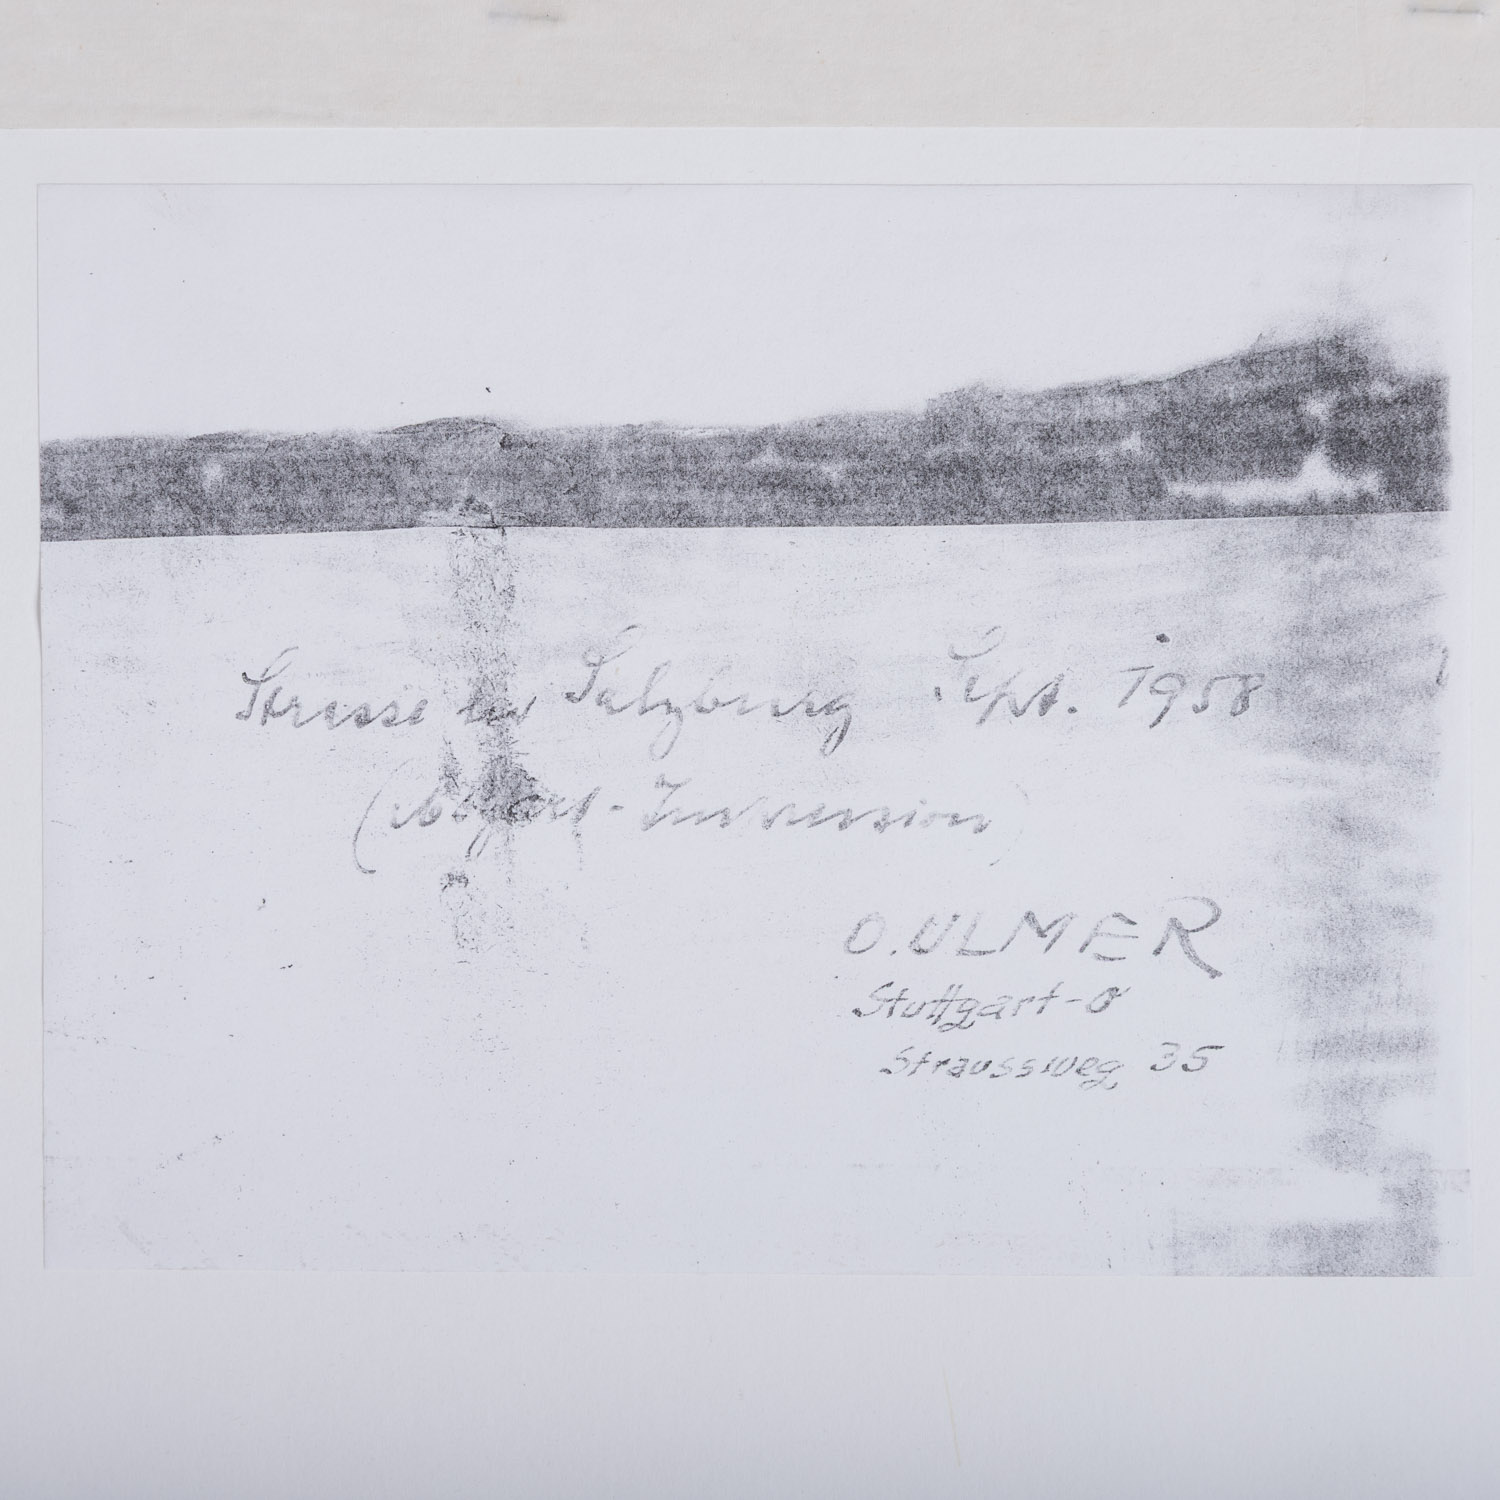 Strasse in Salzburg Sept. 1958
(Mozart-Impression)
O. ULMER
Stuttgart-O
Straussweg 35